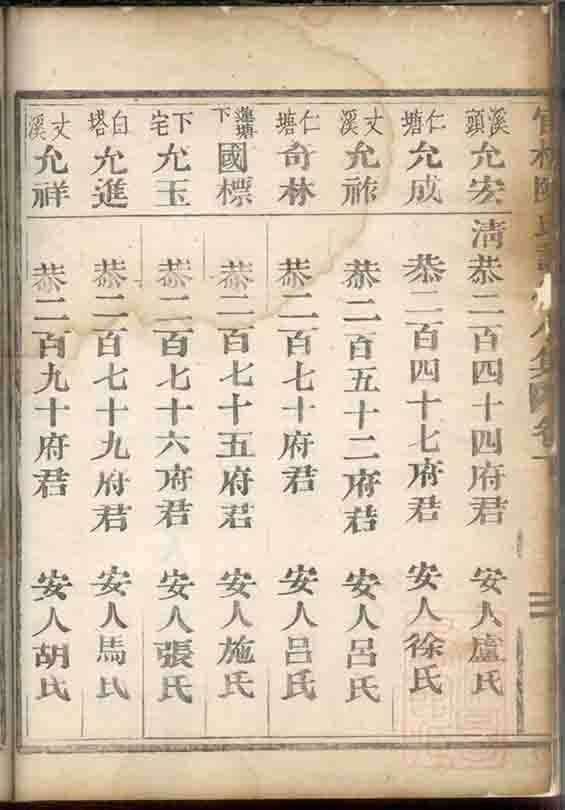 溪頭 允宏 清恭二百四十四府君 安人盧氏
仁塘 允成 恭二百四十七府君 安人徐氏
丈溪 允祚 恭二百五十二府君 安人呂氏
仁塘 奇林 恭二百七十府君 安人呂氏
蓮塘下 國標 恭二百七十五府君 安人施氏
下宅 允玉 恭二百七十六府君 安人張氏
白塔 允進 恭二百七十九府君 安人馬氏
丈溪 允祥 恭二百九十府君 安人胡氏